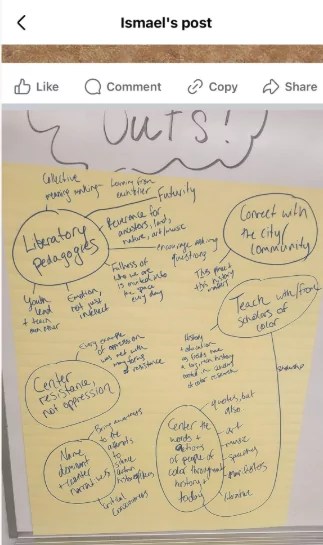 Ismael's post
Like
Comment
Copy
Share
OUTS!
Collective
meaning making
Learning from
each other
Futurity
Reverence for
ancestors, land,
nature, art/music
encourage asking
questions
Liberatory
pedagogies
Fullness of
who we are
is invited into
the space
every day
Youth
lead
+ teach
each other
Emotion,
not just
intellect
Connect with
the city/
community
This place
+ this
Teach with/from
scholars of
color
History
+ education
as fields have
a
history
rooted in
of color research
Every example
of oppression
was met with
many forms
of resistance
Center
resistance,
not oppression
Name
dominant
+ center
narratives
Bring awareness
to the
attempts
to
silence
histories
Critical
consciousness
Center the
words +
actions
of people of
color throughout
history +
today
quotes, but
also
art
music
speeches
manifestos
literature